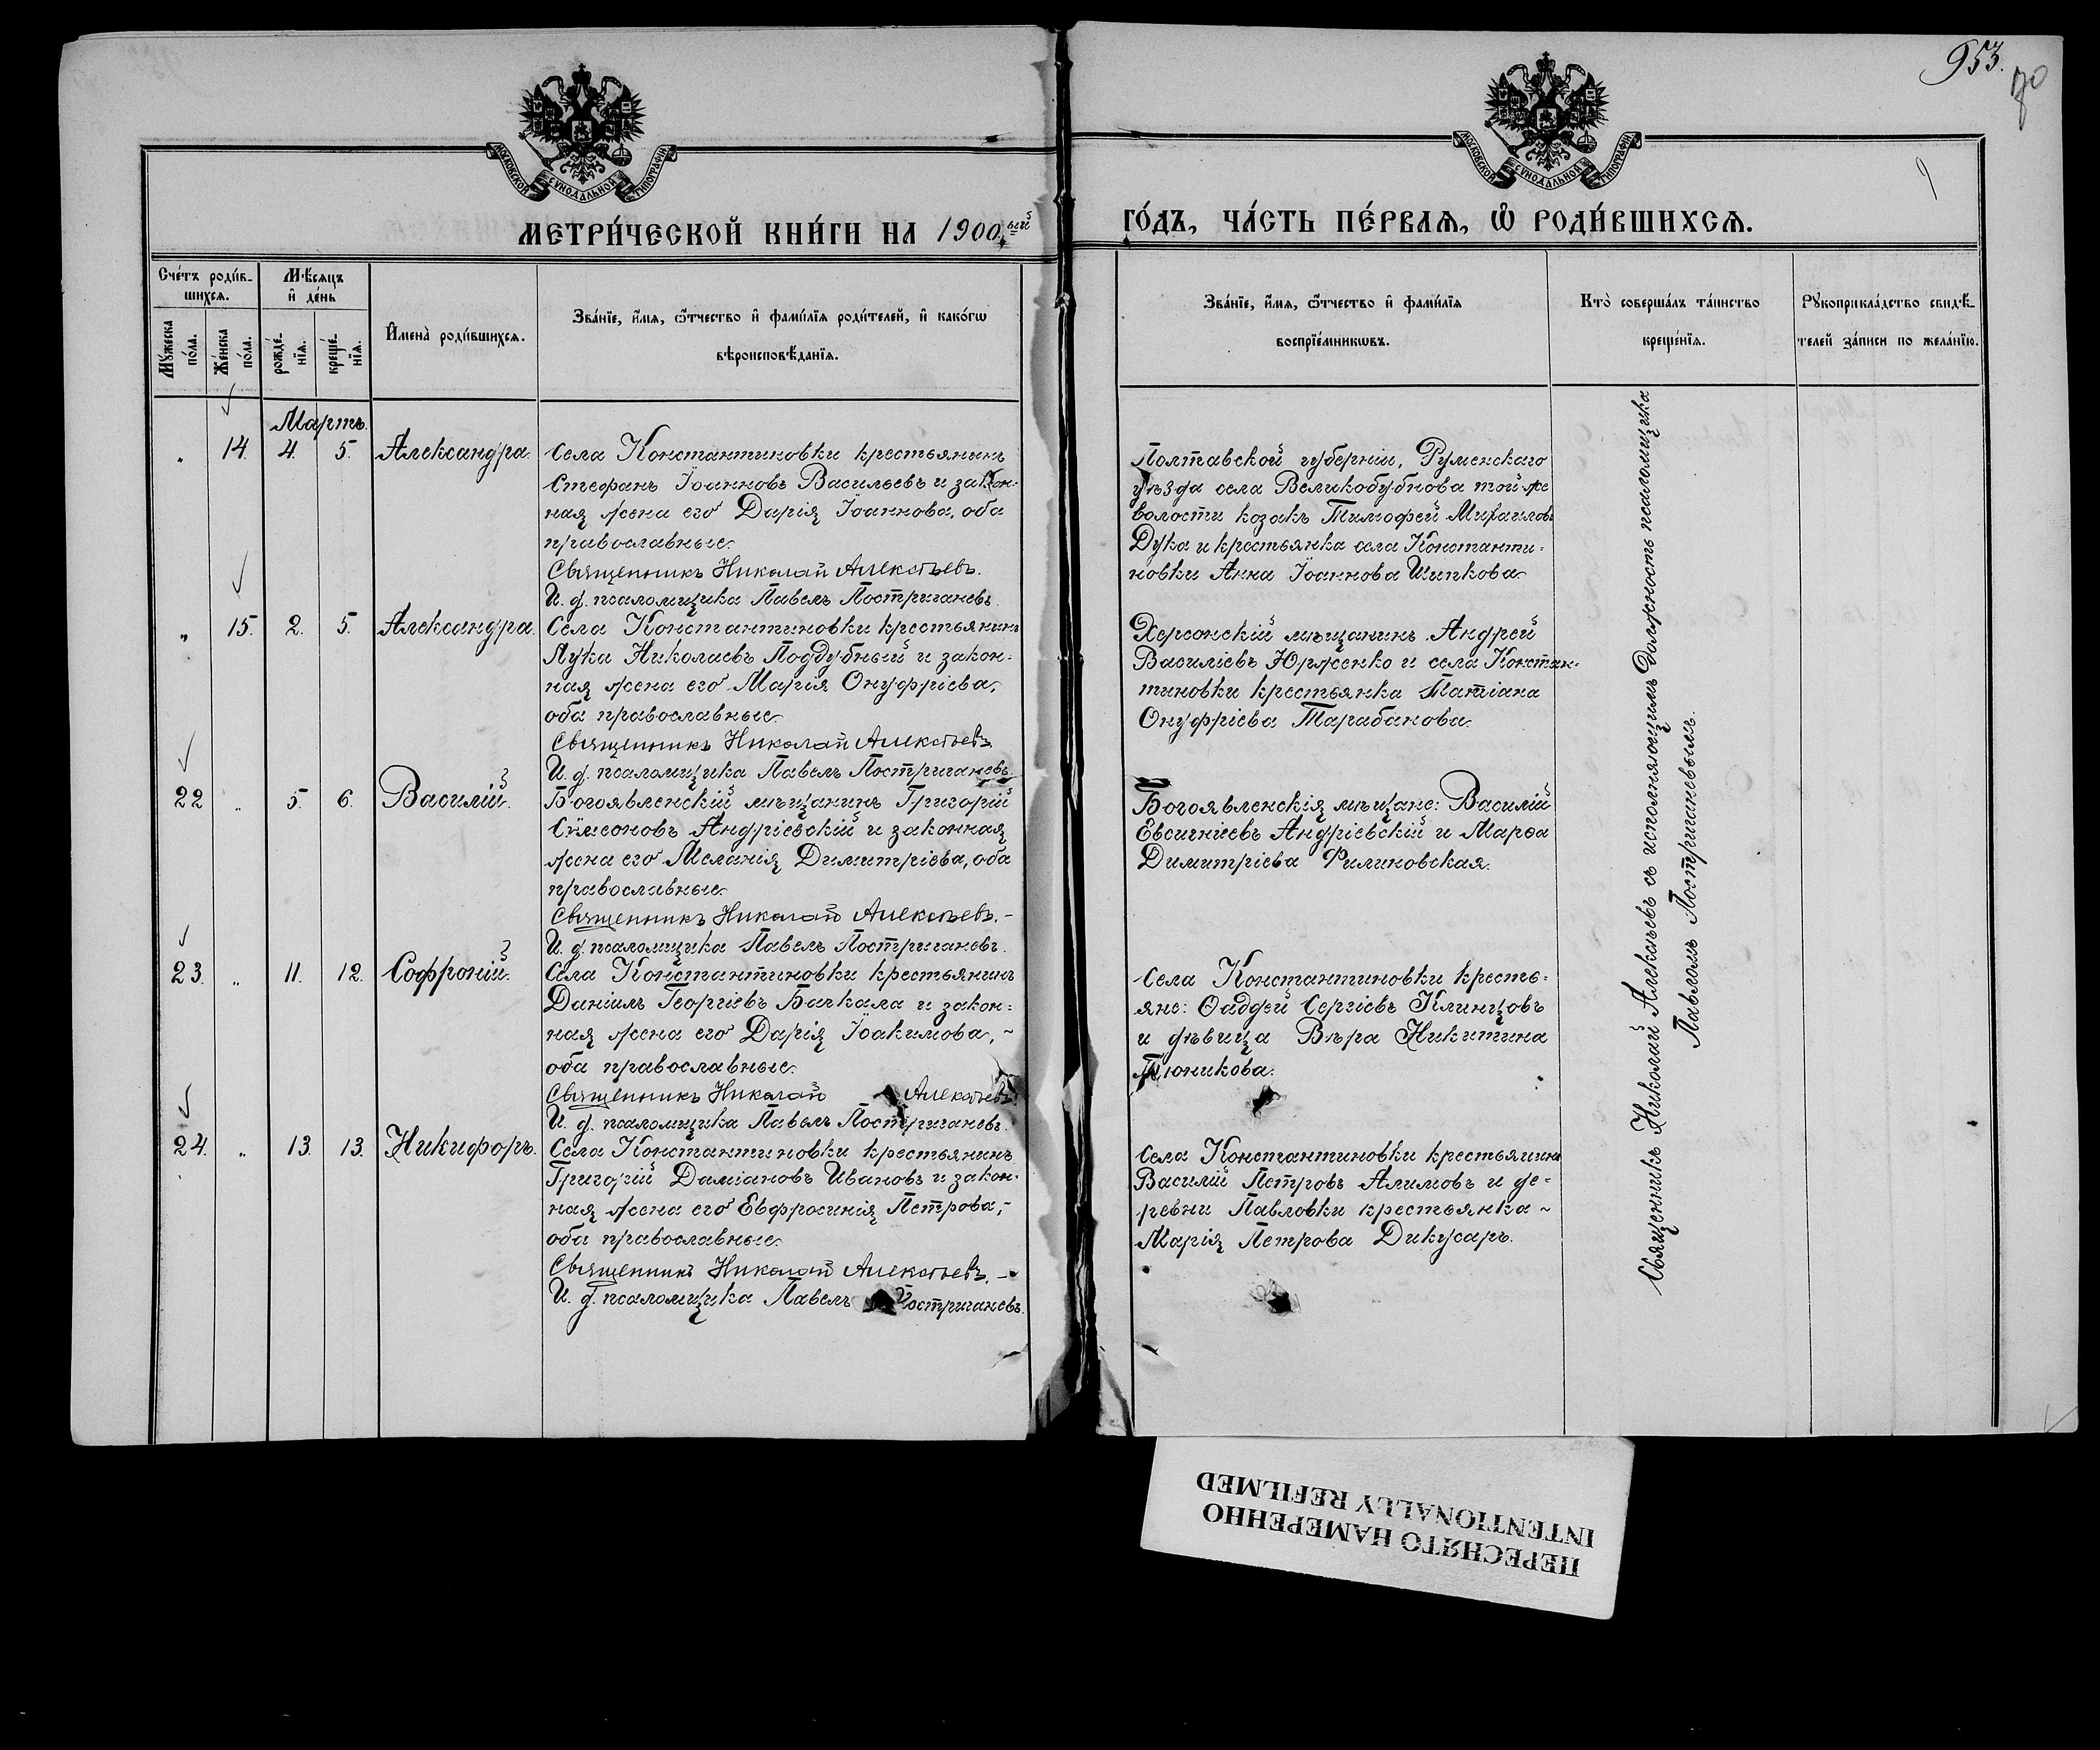 953.
70
МОСКОВСКОЙ СѴНОДАЛЬНОЙ ТИПОГРАФІИ
МОСКОВСКОЙ СѴНОДАЛЬНОЙ ТИПОГРАФІИ
МЕТРИ́ЧЕСКОЙ КНИ́ГИ НА 1900ый
ГО́ДЪ, ЧА́СТЬ ПЕ́РВАѦ, Ѿ РОДИ́ВШИХСѦ.
Сче́тъ роди́в-
шихсѧ.
Мѣ́сѧцъ
и҆ де́нь
Мꙋ́жеска по́ла.
Же́нска по́ла.
рожде́-
нїѧ.
креще́-
нїѧ.
И҆мена̀ роди́вшихсѧ.
Зва́нїе, и҆́мѧ, ѻ҆́тчество и҆ фами́лїѧ роди́телей, и҆ како́гѡ
вѣроисповѣ́данїѧ.
Зва́нїе, и҆́мѧ, ѻ҆́тчество и҆ фами́лїѧ
воспрїе́мникѡвъ.
Кто̀ соверша́лъ та́инство
креще́нїѧ.
Рꙋкоприкла́дство свидѣ́-
телей за́писи по жела́нїю.
Мартъ.
„ 14. 4. 5. Александра.
Села Константиновки крестьянинъ
Стефанъ Іоанновъ Васильевъ и закон-
ная жена его Дарія Іоаннова, оба
православные.
Священникъ Николай Алексѣевъ.
И. д. псаломщика Павелъ Постригачевъ.
Полтавской губерніи, Руменскаго
уѣзда села Великобубнова той-же
волости козакъ Тимофей Михаиловъ
Дука и крестьянка села Константи-
новки Анна Іоаннова Шипкова
„ 15. 2. 5. Александра.
Села Константиновки крестьянинъ
Лука Николаевъ Поддубный и закон-
ная жена его Марія Онуфріева,
оба православные.
Священникъ Николай Алексѣевъ
И. д. псаломщика Павелъ Постригачевъ.
Херсонскій мѣщанинъ Андрей
Василіевъ Юрженко и села Констан-
тиновки крестьянка Татіана
Онуфріева Тарабанова.
22 „ 5. 6. Василій.
Богоявленскій мѣщанинъ Григорій
Сѵмеоновъ Андріевскій и законная
жена его Меланія Димитріева, оба
православные.
Священникъ Николай Алексѣевъ.-
И. д. псаломщика Павелъ Постригачевъ.
Богоявленскія мѣщане: Василій
Евсигніевъ Андріевскій и Марѳа
Димитріева Филиновская.
23. „ 11. 12. Софроній.
Села Константиновки крестьянинъ
Даніилъ Георгіевъ Бачкала и закон-
ная жена его Дарія Іоакимова,
оба православные.
Священникъ Николай Алексѣевъ.
И. д. псаломщика Павелъ Постригачевъ.
Села Константиновки кресть-
яне: Ѳаддей Сергіевъ Клинцовъ
и дѣвица Вѣра Никитина
Тюникова.
24. „ 13. 13. Никифоръ.
Села Константиновки крестьянинъ
Григорій Даміановъ Ивановъ и закон-
ная жена его Евфросинія Петрова,
оба православные.
Священникъ Николай Алексѣевъ.-
И. д. псаломщика Павелъ Постригачевъ.
Села Константиновки крестьянинъ
Василій Петровъ Алимовъ и де-
ревни Павловки крестьянка
Марія Петрова Дикусаръ.
Священникъ Николай Алексѣевъ съ исполняющимъ должность псаломщика
Павломъ Постригачевымъ.
ПЕРЕСНЯТО НАМЕРЕННО
INTENTIONALLY REFILMED